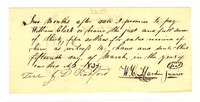 Two Months after date I promise to pay
William Clark or
the just and full sum
of thirty five dollars for value received of
him as witness my hand and seal this
fifteenth day of March in the year of
our lord 1834
Test J D Radford
W. Hardin Junior